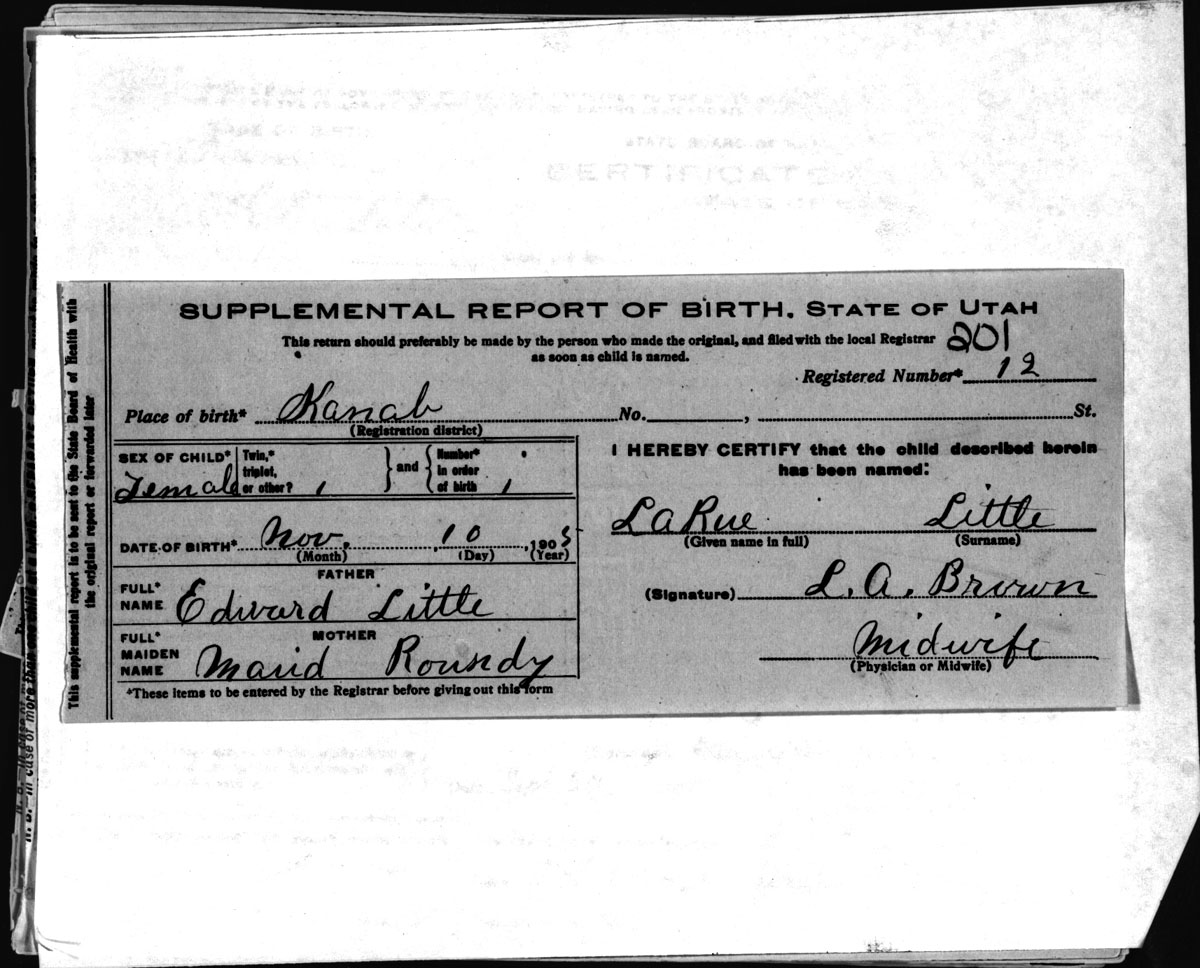 SUPPLEMENTAL REPORT OF BIRTH. STATE OF UTAH
This return should preferably be made by the person who made the original, and filed with the local Registrar 201
as soon as child is named.
Registered Number* 12
Place of birth* Kanab No. , St.
(Registration district)
SEX OF CHILD* Female
Twin,* triplet, or other? 1
and
Number* in order of birth 1
DATE OF BIRTH* Nov. 10, 1905
(Month) (Day) (Year)
FATHER
FULL* NAME Edward Little
MOTHER
FULL* MAIDEN NAME Maud Roundy
*These items to be entered by the Registrar before giving out this form
I HEREBY CERTIFY that the child described herein
has been named:
LaRue Little
(Given name in full) (Surname)
(Signature) L. A. Brown
Midwife
(Physician or Midwife)
This supplemental report is to be sent to the State Board of Health with
the original report or forwarded later